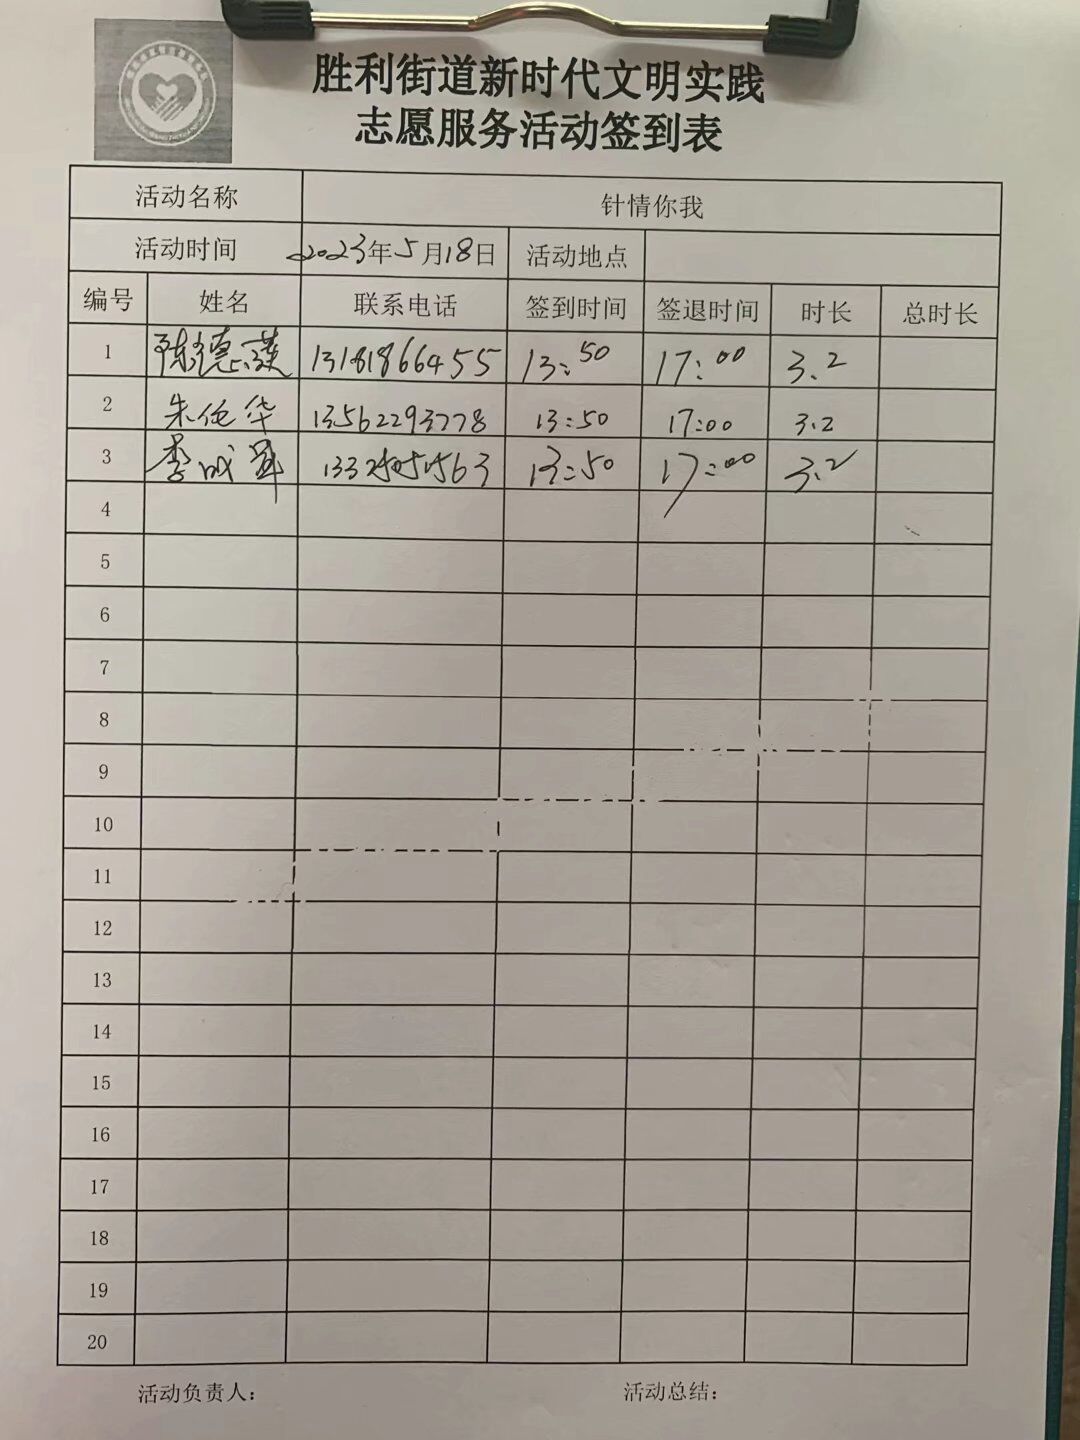 胜利街道新时代文明实践
志愿服务活动签到表
活动名称 针情你我
活动时间 2023年5月18日 活动地点
编号 姓名 联系电话 签到时间 签退时间 时长 总时长
1 陈德英 13181866455 13:50 17:00 3.2
2 朱伦华 13562293778 13:50 17:00 3.2
3 李成 13:50 17:00 3.2
4
5
6
7
8
9
10
11
12
13
14
15
16
17
18
19
20
活动负责人: 活动总结: